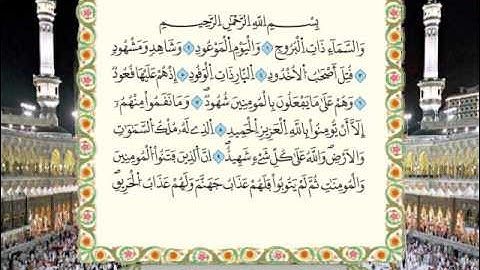 بِسْمِ اللَّهِ الرَّحْمَٰنِ الرَّحِيمِ
وَالسَّمَاءِ ذَاتِ الْبُرُوجِ ۝١ وَالْيَوْمِ الْمَوْعُودِ ۝٢ وَشَاهِدٍ وَمَشْهُودٍ
۝٣ قُتِلَ أَصْحَابُ الْأُخْدُودِ ۝٤ النَّارِ ذَاتِ الْوَقُودِ ۝٥ إِذْ هُمْ عَلَيْهَا قُعُودٌ
۝٦ وَهُمْ عَلَىٰ مَا يَفْعَلُونَ بِالْمُؤْمِنِينَ شُهُودٌ ۝٧ وَمَا نَقَمُوا مِنْهُمْ
إِلَّا أَنْ يُؤْمِنُوا بِاللَّهِ الْعَزِيزِ الْحَمِيدِ ۝٨ الَّذِي لَهُ مُلْكُ السَّمَٰوَٰتِ
وَالْأَرْضِ وَاللَّهُ عَلَىٰ كُلِّ شَيْءٍ شَهِيدٌ ۝٩ إِنَّ الَّذِينَ فَتَنُوا الْمُؤْمِنِينَ
وَالْمُؤْمِنَٰتِ ثُمَّ لَمْ يَتُوبُوا فَلَهُمْ عَذَابُ جَهَنَّمَ وَلَهُمْ عَذَابُ الْحَرِيقِ